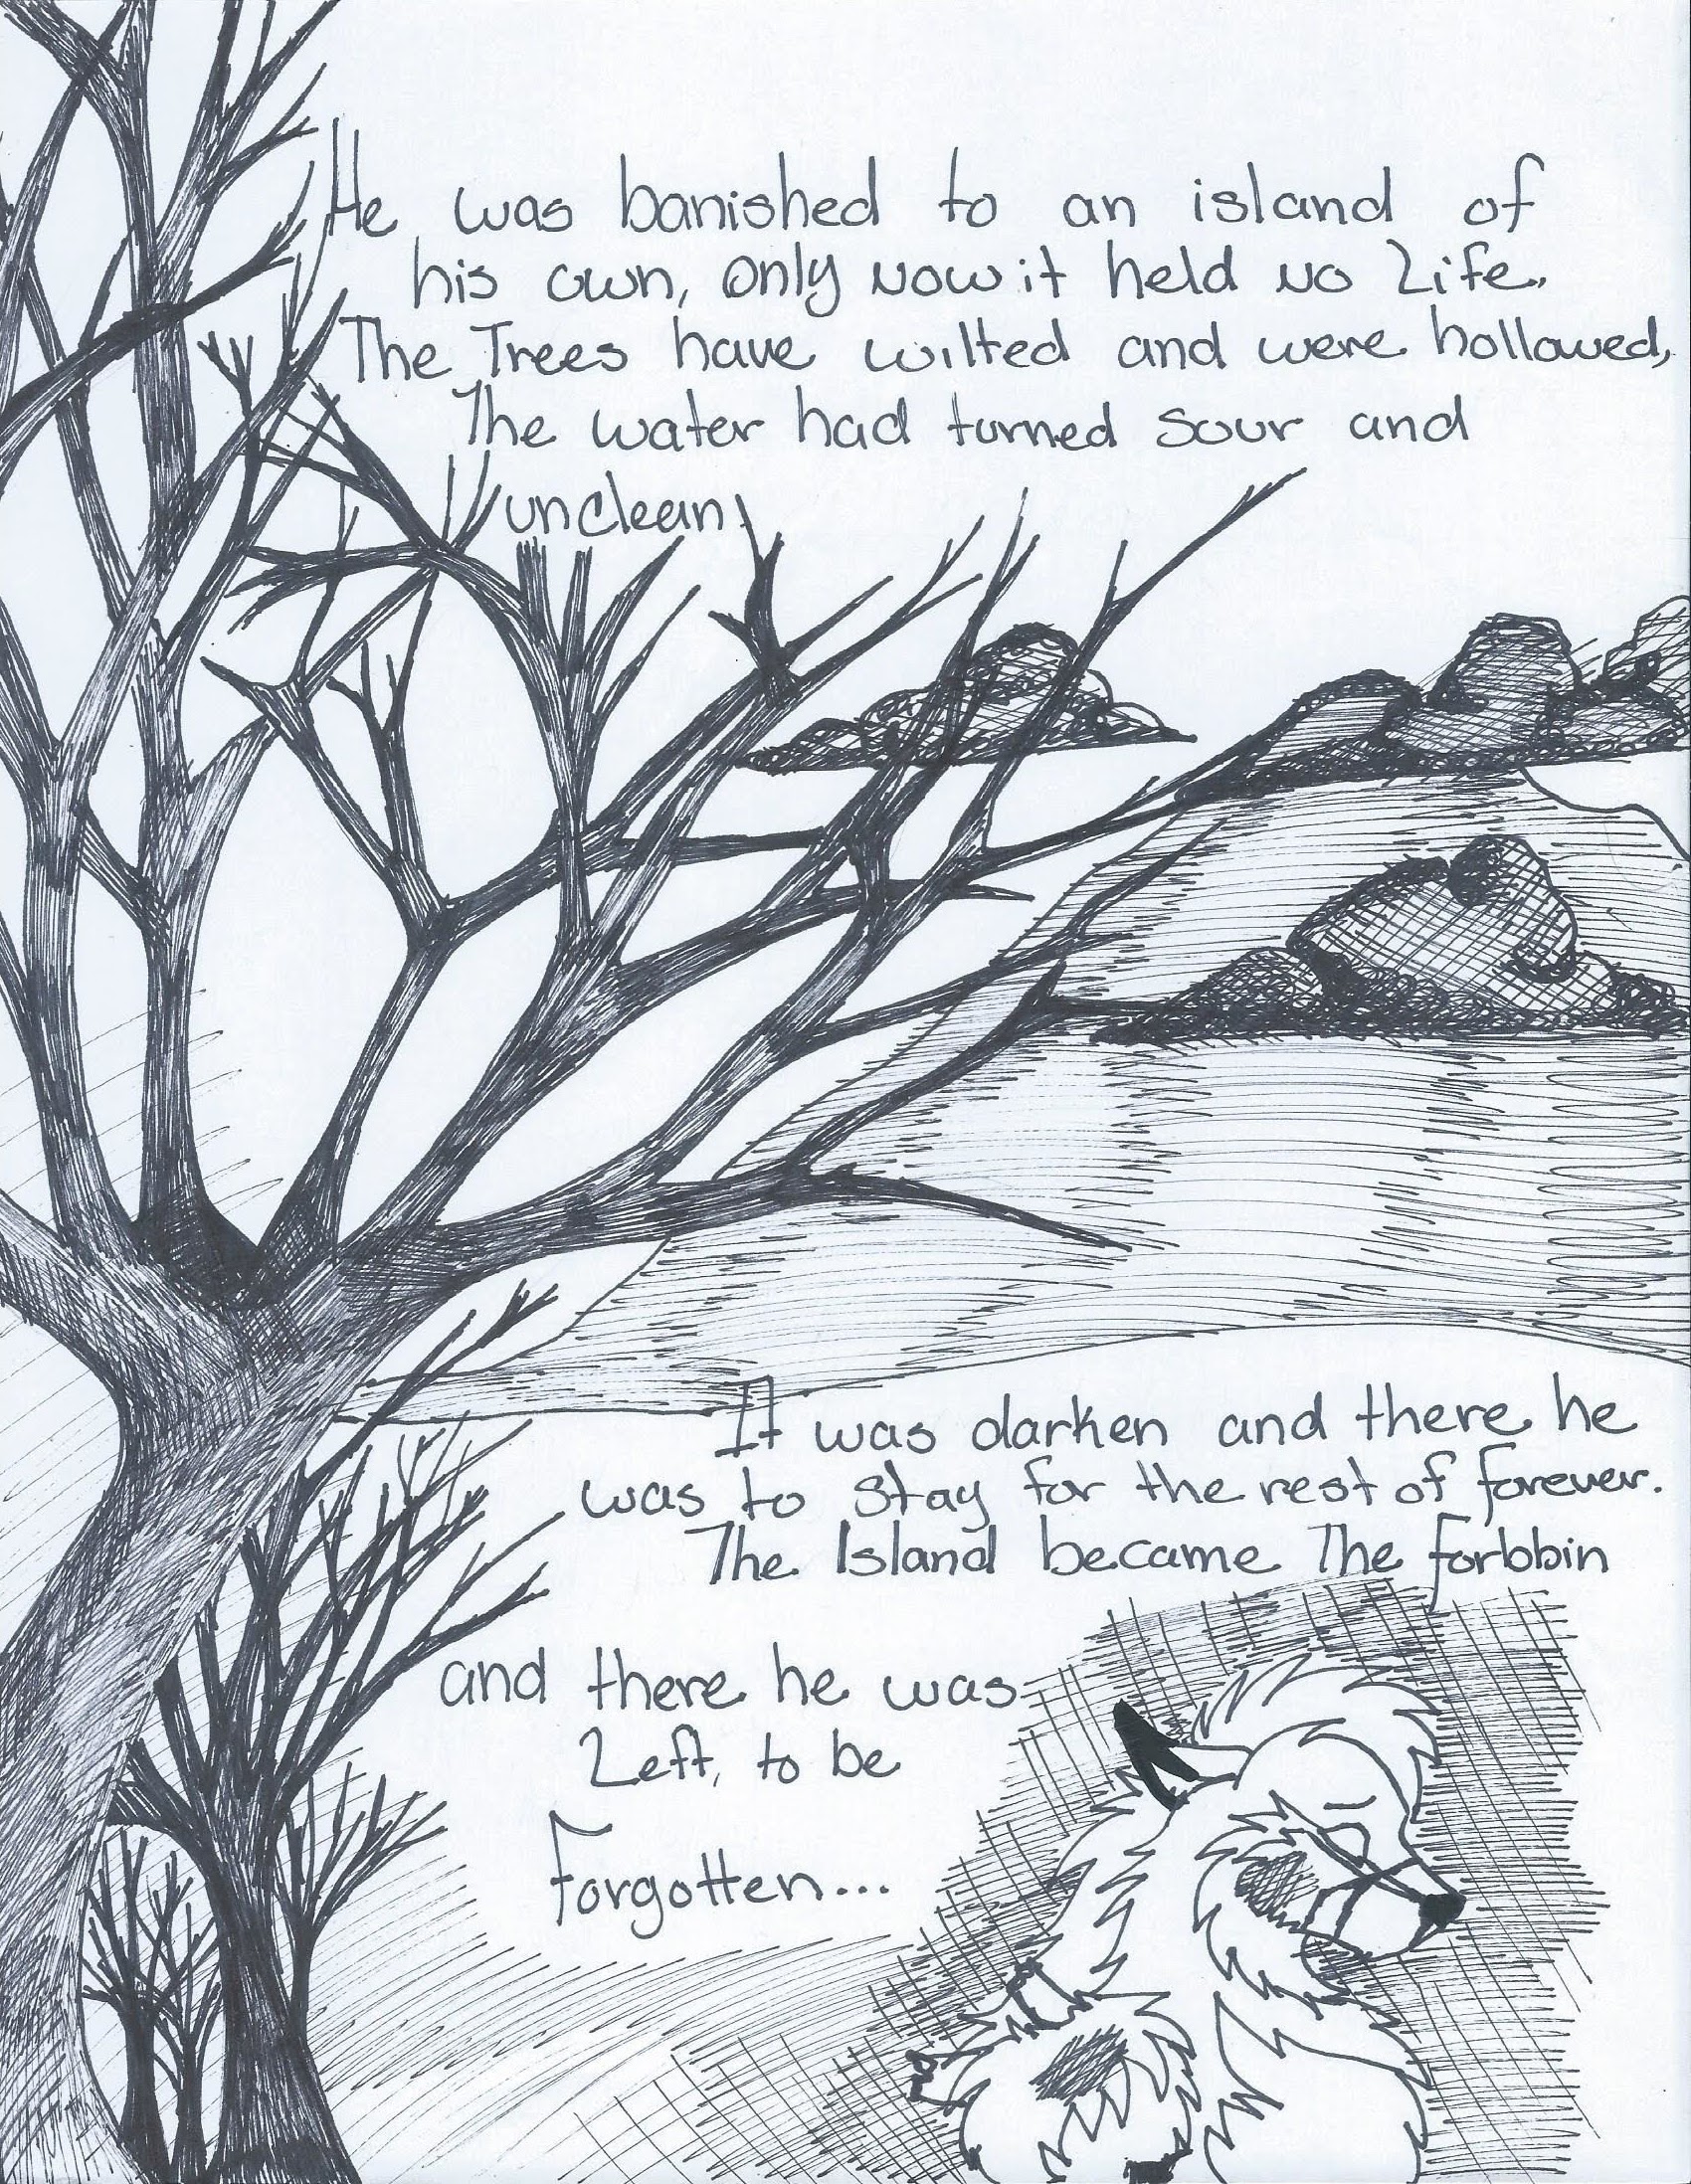 He was banished to an island of
his own, only now it held no Life.
The Trees have wilted and were hollowed,
The water had turned sour and
unclean,
It was darken and there he
was to stay for the rest of forever.
The Island became The forbbin
and there he was
Left, to be
Forgotten...